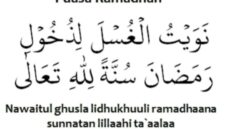 Puasa Ramadhan
نَوَيْتُ الْغُسْلَ لِدُخُوْلِ
رَمَضَانَ سُنَّةً لِلّٰهِ تَعَالَى
Nawaitul ghusla lidhukhuuli ramadhaana
sunnatan lillaahi ta`aalaa